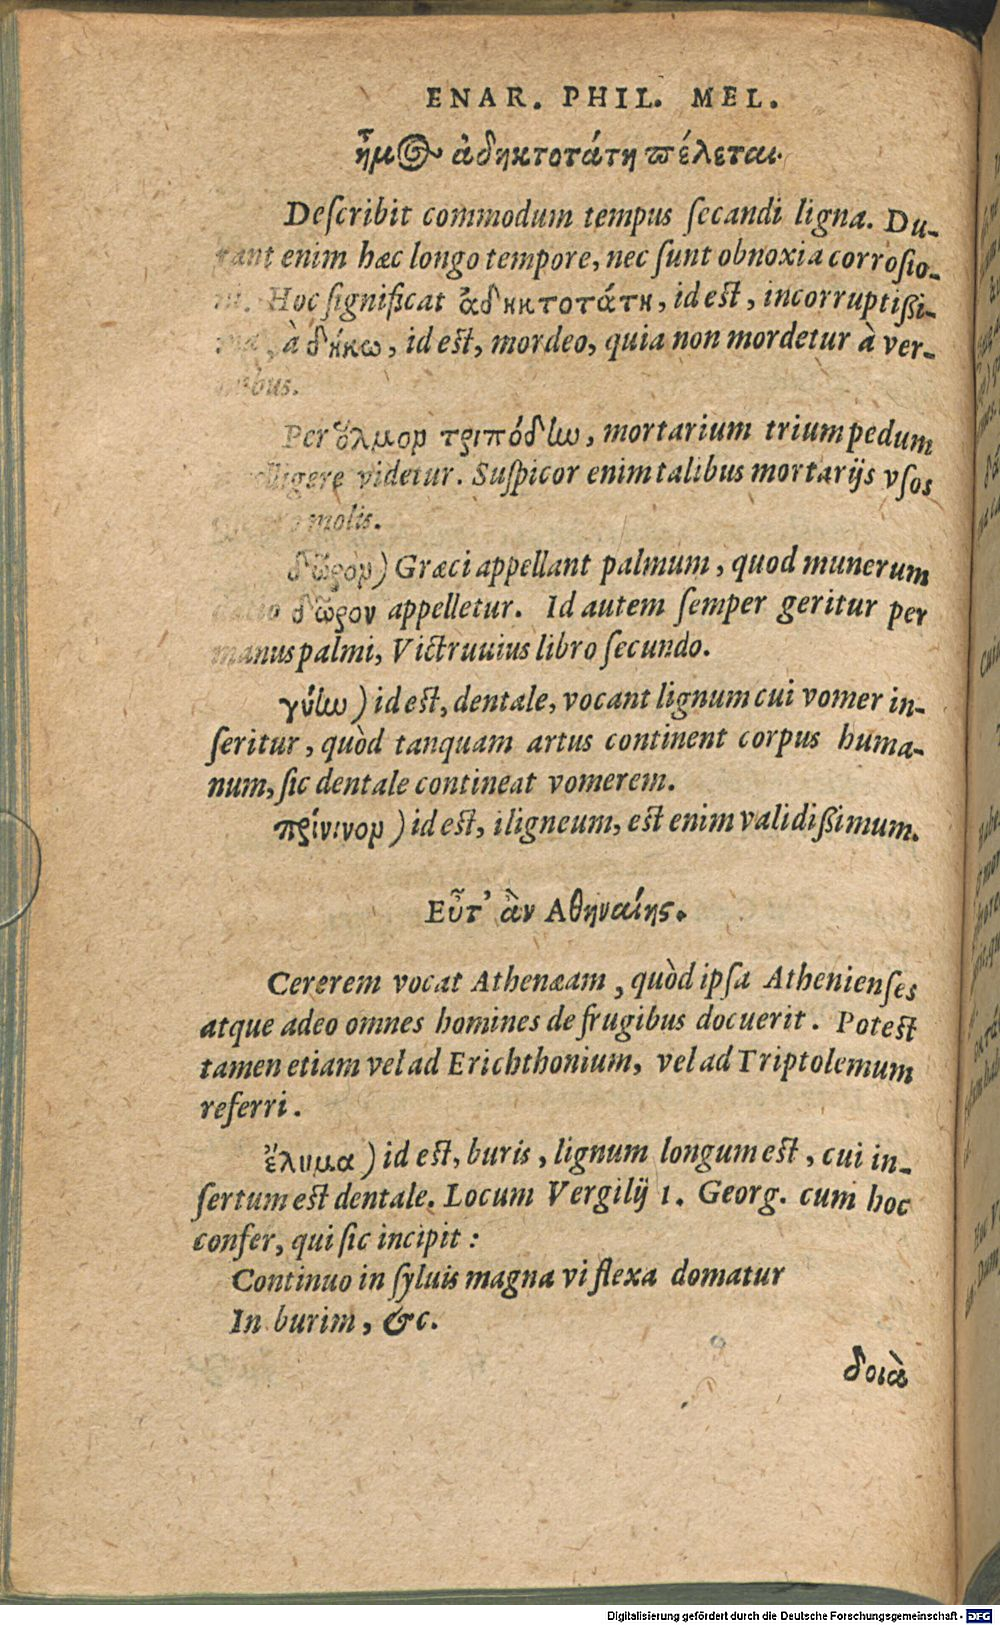 ENAR. PHIL. MEL.
ἦμος ἀδηκτοτάτη πέλεται.
Deſcribit commodum tempus ſecandi ligna. Du-
rant enim hæc longo tempore, nec ſunt obnoxia corroſio-
ni. Hoc ſignificat ἀδηκτοτάτη, id eſt, incorruptißi-
ma, à δήκω, id eſt, mordeo, quia non mordetur à ver-
mibus.
Per ὅλμον τριπόδην, mortarium trium pedum
intelligere videtur. Suſpicor enim talibus mortarijs vſos
molis.
δῶρον) Græci appellant palmum, quod munerum
datio δῶρον appelletur. Id autem ſemper geritur per
manus palmi, Victruuius libro ſecundo.
γύην) id eſt, dentale, vocant lignum cui vomer in-
ſeritur, quòd tanquam artus continent corpus huma-
num, ſic dentale contineat vomerem.
πρίνινον) id eſt, iligneum, eſt enim validißimum.
Εὖτ' ἂν Αθηναίης.
Cererem vocat Athenæam, quòd ipſa Athenienſes
atque adeo omnes homines de frugibus docuerit. Poteſt
tamen etiam vel ad Erichthonium, vel ad Triptolemum
referri.
ἔλυμα) id eſt, buris, lignum longum eſt, cui in-
ſertum eſt dentale. Locum Vergilij 1. Georg. cum hoc
confer, qui ſic incipit:
Continuo in ſyluis magna vi flexa domatur
In burim, &c.
δοιὰ
Digitalisierung gefördert durch die Deutsche Forschungsgemeinschaft - DFG